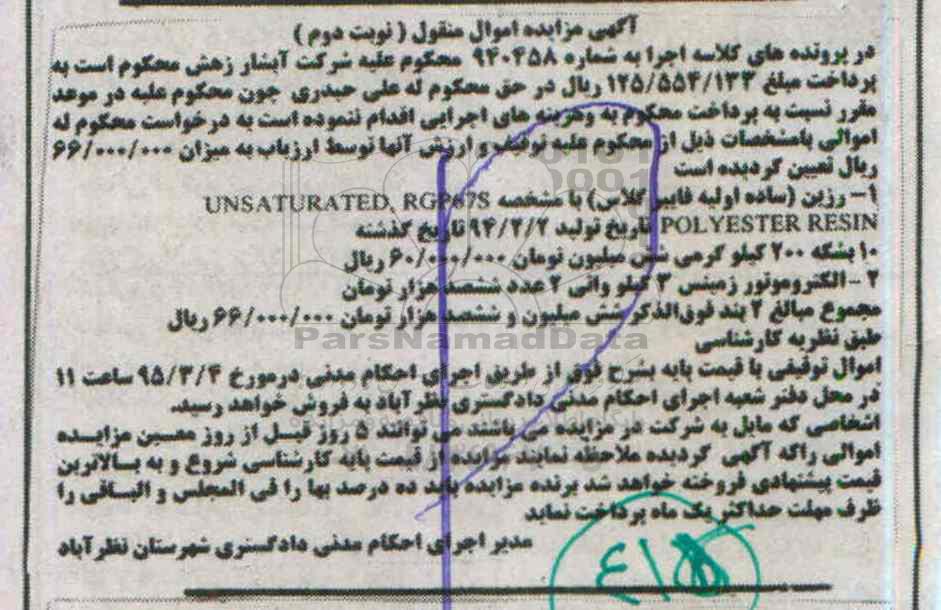 آگهی مزایده اموال منقول ( نوبت دوم )
در پرونده های کلاسه اجرا به شماره ۹۴۰۴۵۸ محکوم علیه شرکت آبشار زهش محکوم است به
پرداخت مبلغ ۱۲۵/۵۵۴/۱۳۳ ریال در حق محکوم له علی حیدری چون محکوم علیه در موعد
مقرر نسبت به پرداخت محکوم به وهزینه های اجرایی اقدام ننموده است به درخواست محکوم له
اموالی بامشخصات ذیل از محکوم علیه توقیف و ارزش آنها توسط ارزیاب به میزان ۶۶/۰۰۰/۰۰۰
ریال تعیین گردیده است
۱- رزین (ساده اولیه فایبر گلاس) با مشخصه UNSATURATED, RGP67S
POLYESTER RESIN تاریخ تولید ۹۴/۲/۲ تاریخ گذشته
۱۰ بشکه ۲۰۰ کیلو گرمی شش میلیون تومان ۶۰/۰۰۰/۰۰۰ ریال
۲ -الکتروموتور زمینس ۳ کیلو واتی ۲ عدد ششصد هزار تومان
مجموع مبالغ ۲ بند فوق‌الذکر شش میلیون و ششصد هزار تومان ۶۶/۰۰۰/۰۰۰ ریال
طبق نظریه کارشناسی
ParsNamadData
اموال توقیفی با قیمت پایه بشرح فوق از طریق اجرای احکام مدنی درمورخ ۹۵/۳/۴ ساعت ۱۱
در محل دفتر شعبه اجرای احکام مدنی دادگستری نظرآباد به فروش خواهد رسید.
اشخاصی که مایل به شرکت در مزایده می باشند می توانند ۵ روز قبل از روز معین مزایده
اموالی راکه آگهی گردیده ملاحظه نمایند مزایده از قیمت پایه کارشناسی شروع و به بالاترین
قیمت پیشنهادی فروخته خواهد شد برنده مزایده باید ده درصد بها را فی المجلس و الباقی را
ظرف مهلت حداکثر یک ماه پرداخت نماید
مدیر اجرای احکام مدنی دادگستری شهرستان نظرآباد